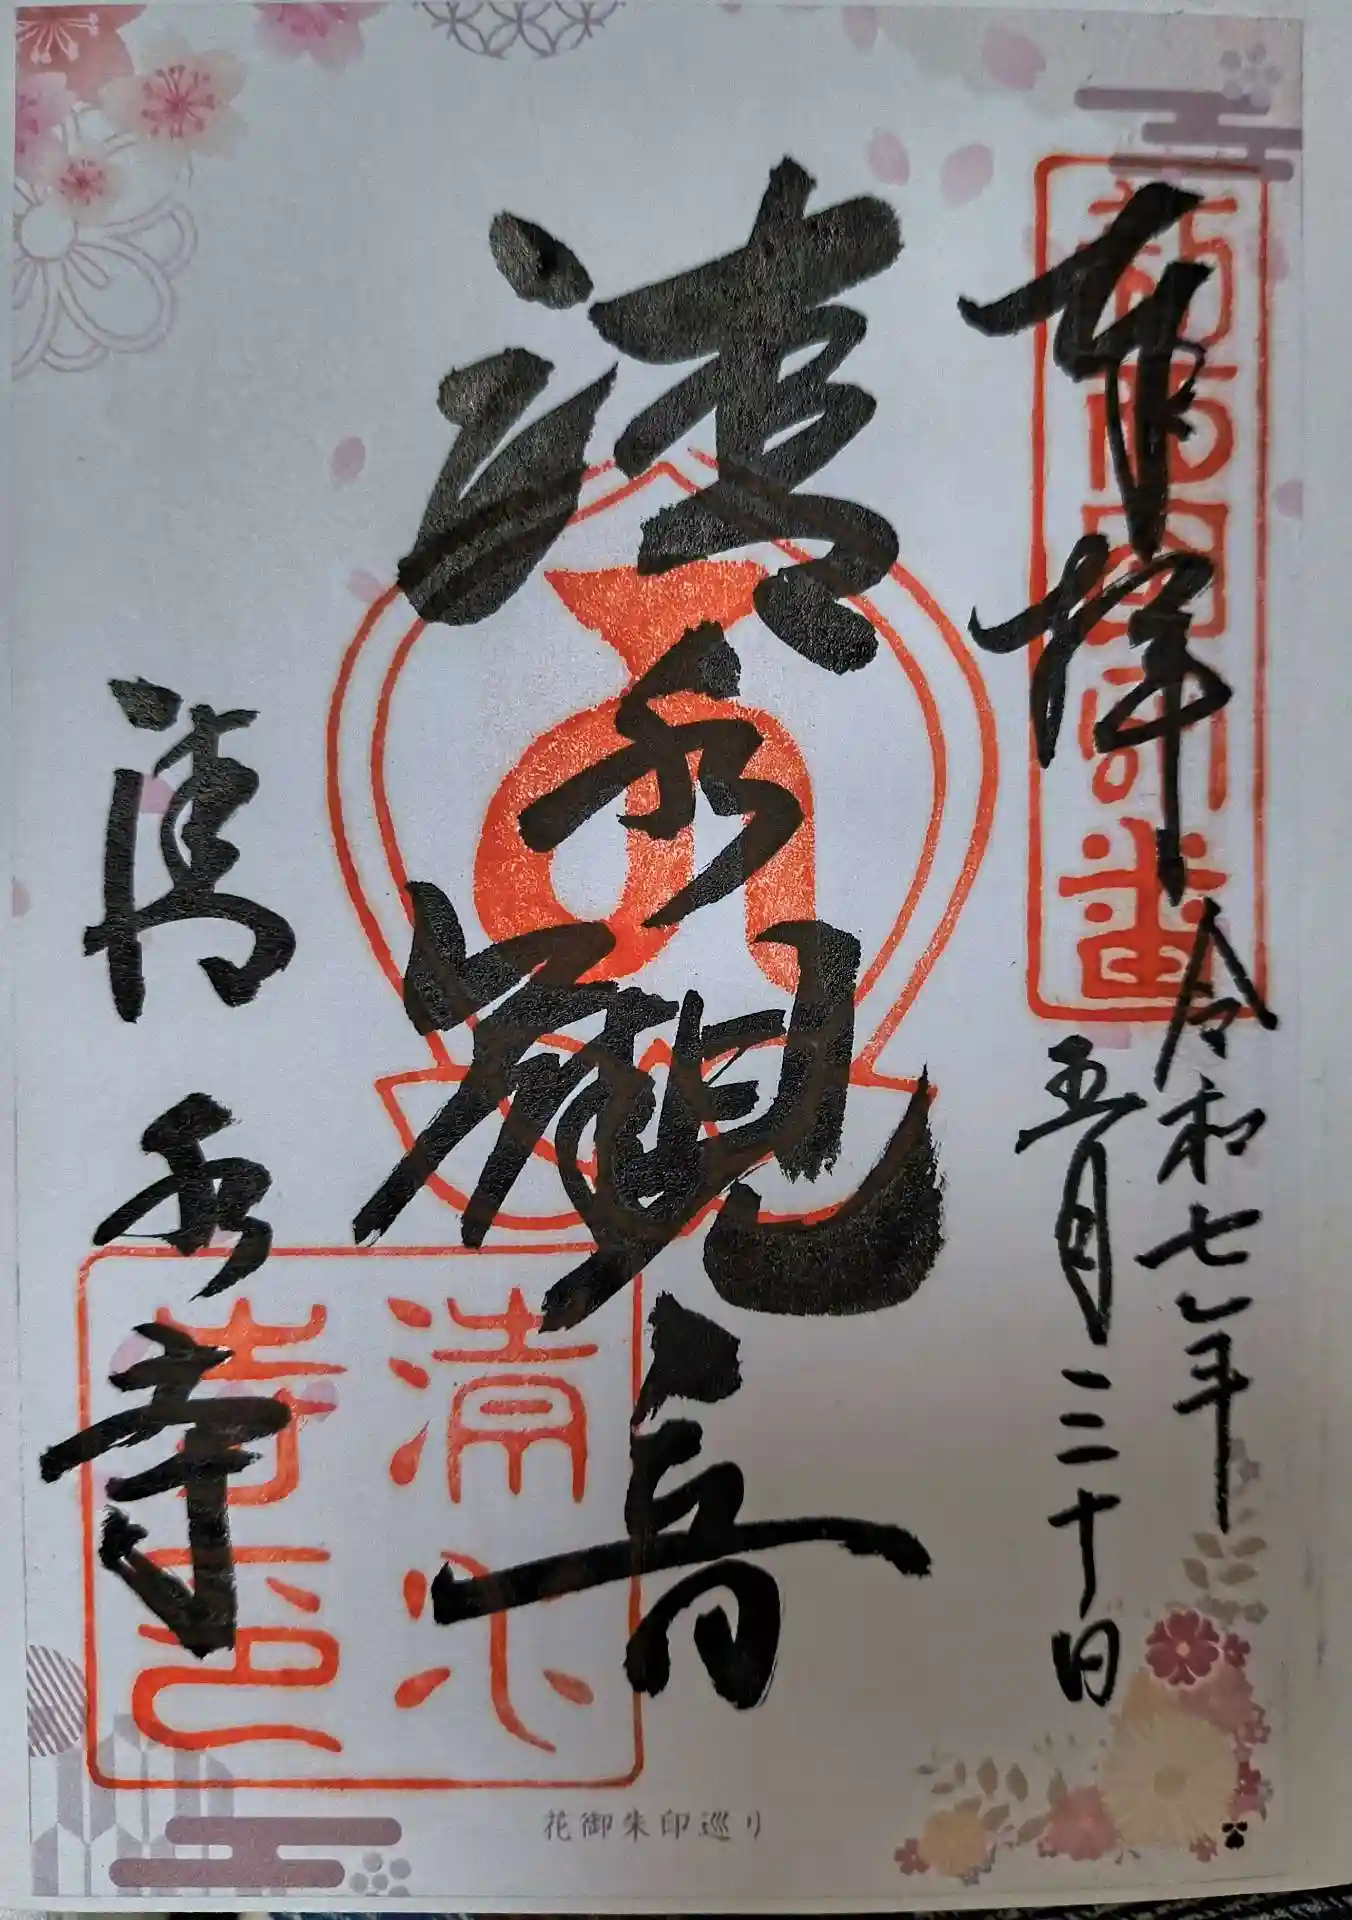 奉拝
令和七年
五月三十日
清水観音
清水寺
清水
寺印
花御朱印巡り